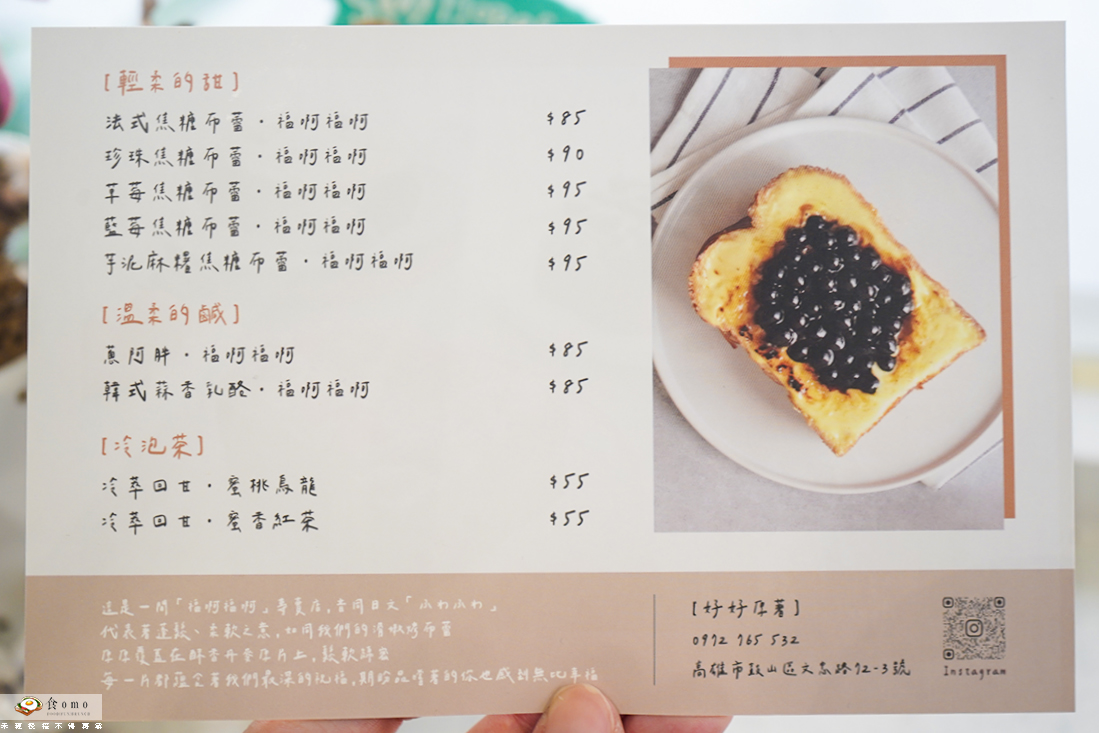 [輕柔的甜]
法式焦糖布蕾・福啊福啊 $85
珍珠焦糖布蕾・福啊福啊 $90
草莓焦糖布蕾・福啊福啊 $95
藍莓焦糖布蕾・福啊福啊 $95
芋泥麻糬焦糖布蕾・福啊福啊 $95
[溫柔的鹹]
蔥阿胖・福啊福啊 $85
韓式蒜香乳酪・福啊福啊 $85
[冷泡茶]
冷萃回甘・蜜桃烏龍 $55
冷萃回甘・蜜香紅茶 $55
這是一間「福啊福啊」專賣店,音同日文「ふわふわ」
代表著蓬鬆、柔軟之意,如同我們的滑嫩烤布蕾
厚厚覆蓋在酥香丹麥厚片上,鬆軟綿密
每一片都蘊含著我們最深的祝福,期盼品嚐著的你也感到無比幸福
[好好厚薯]
0972 765 532
高雄市鼓山區文忠路72-3號
Instagram
食omo
未經授權不得轉載